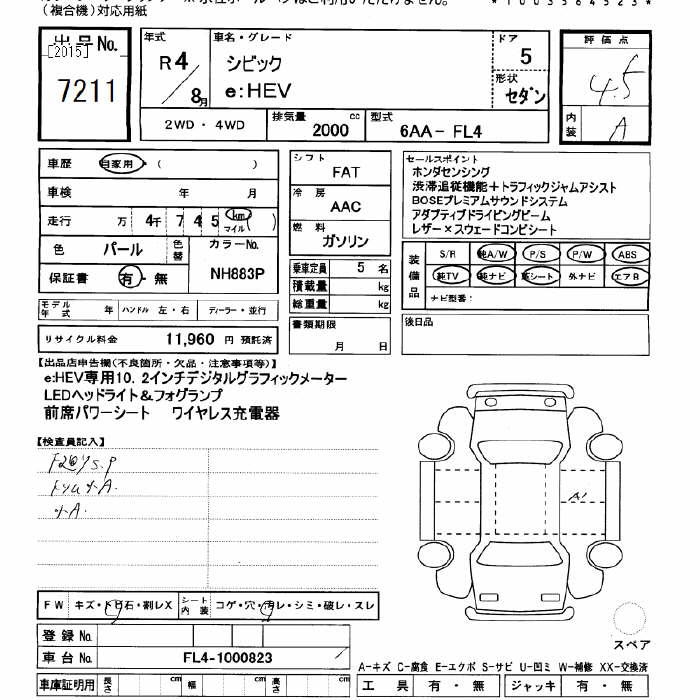 (複合機)対応用紙
*1003564523*
出品No.
[2015]
7211
年式
R4/8月
車名・グレード
シビック
e:HEV
ドア
5
形状
セダン
評価点
4.5
内装
A
2WD・4WD
排気量
2000 cc
型式
6AA- FL4
車歴 自家用・( )
車検 年 月
走行 万 4千 7 4 5 (km マイル)
色 パール
色替
カラーNo.
NH883P
保証書 有・無
モデル年式 年
ハンドル 左・右
ディーラー・並行
リサイクル料金 11,960 円 預託済
シフト
FAT
冷房
AAC
燃料
ガソリン
乗車定員 5 名
積載量 kg
総重量 kg
書類期限
月 日
セールスポイント
ホンダセンシング
渋滞追従機能+トラフィックジャムアシスト
BOSEプレミアムサウンドシステム
アダプティブドライビングビーム
レザー×スウェードコンビシート
装備品
S/R 純A/W P/S P/W ABS
純TV 純ナビ 革シート 外ナビ エアB
ナビ型番:
後日品
【出品店申告欄(不良箇所・欠品・注意事項等)】
e:HEV専用10.2インチデジタルグラフィックメーター
LEDヘッドライト&フォグランプ
前席パワーシート ワイヤレス充電器
【検査員記入】
A1
FW キズ・トビ石・割レX
シート内装 コゲ・穴・汚レ・シミ・破レ・スレ
登録No.
車台No. FL4-1000823
車庫証明用 長さ cm 幅 cm 高さ cm
スペア
A-キズ C-腐食 E-エクボ S-サビ U-凹ミ W-補修 XX-交換済
工具 有・無 ジャッキ 有・無